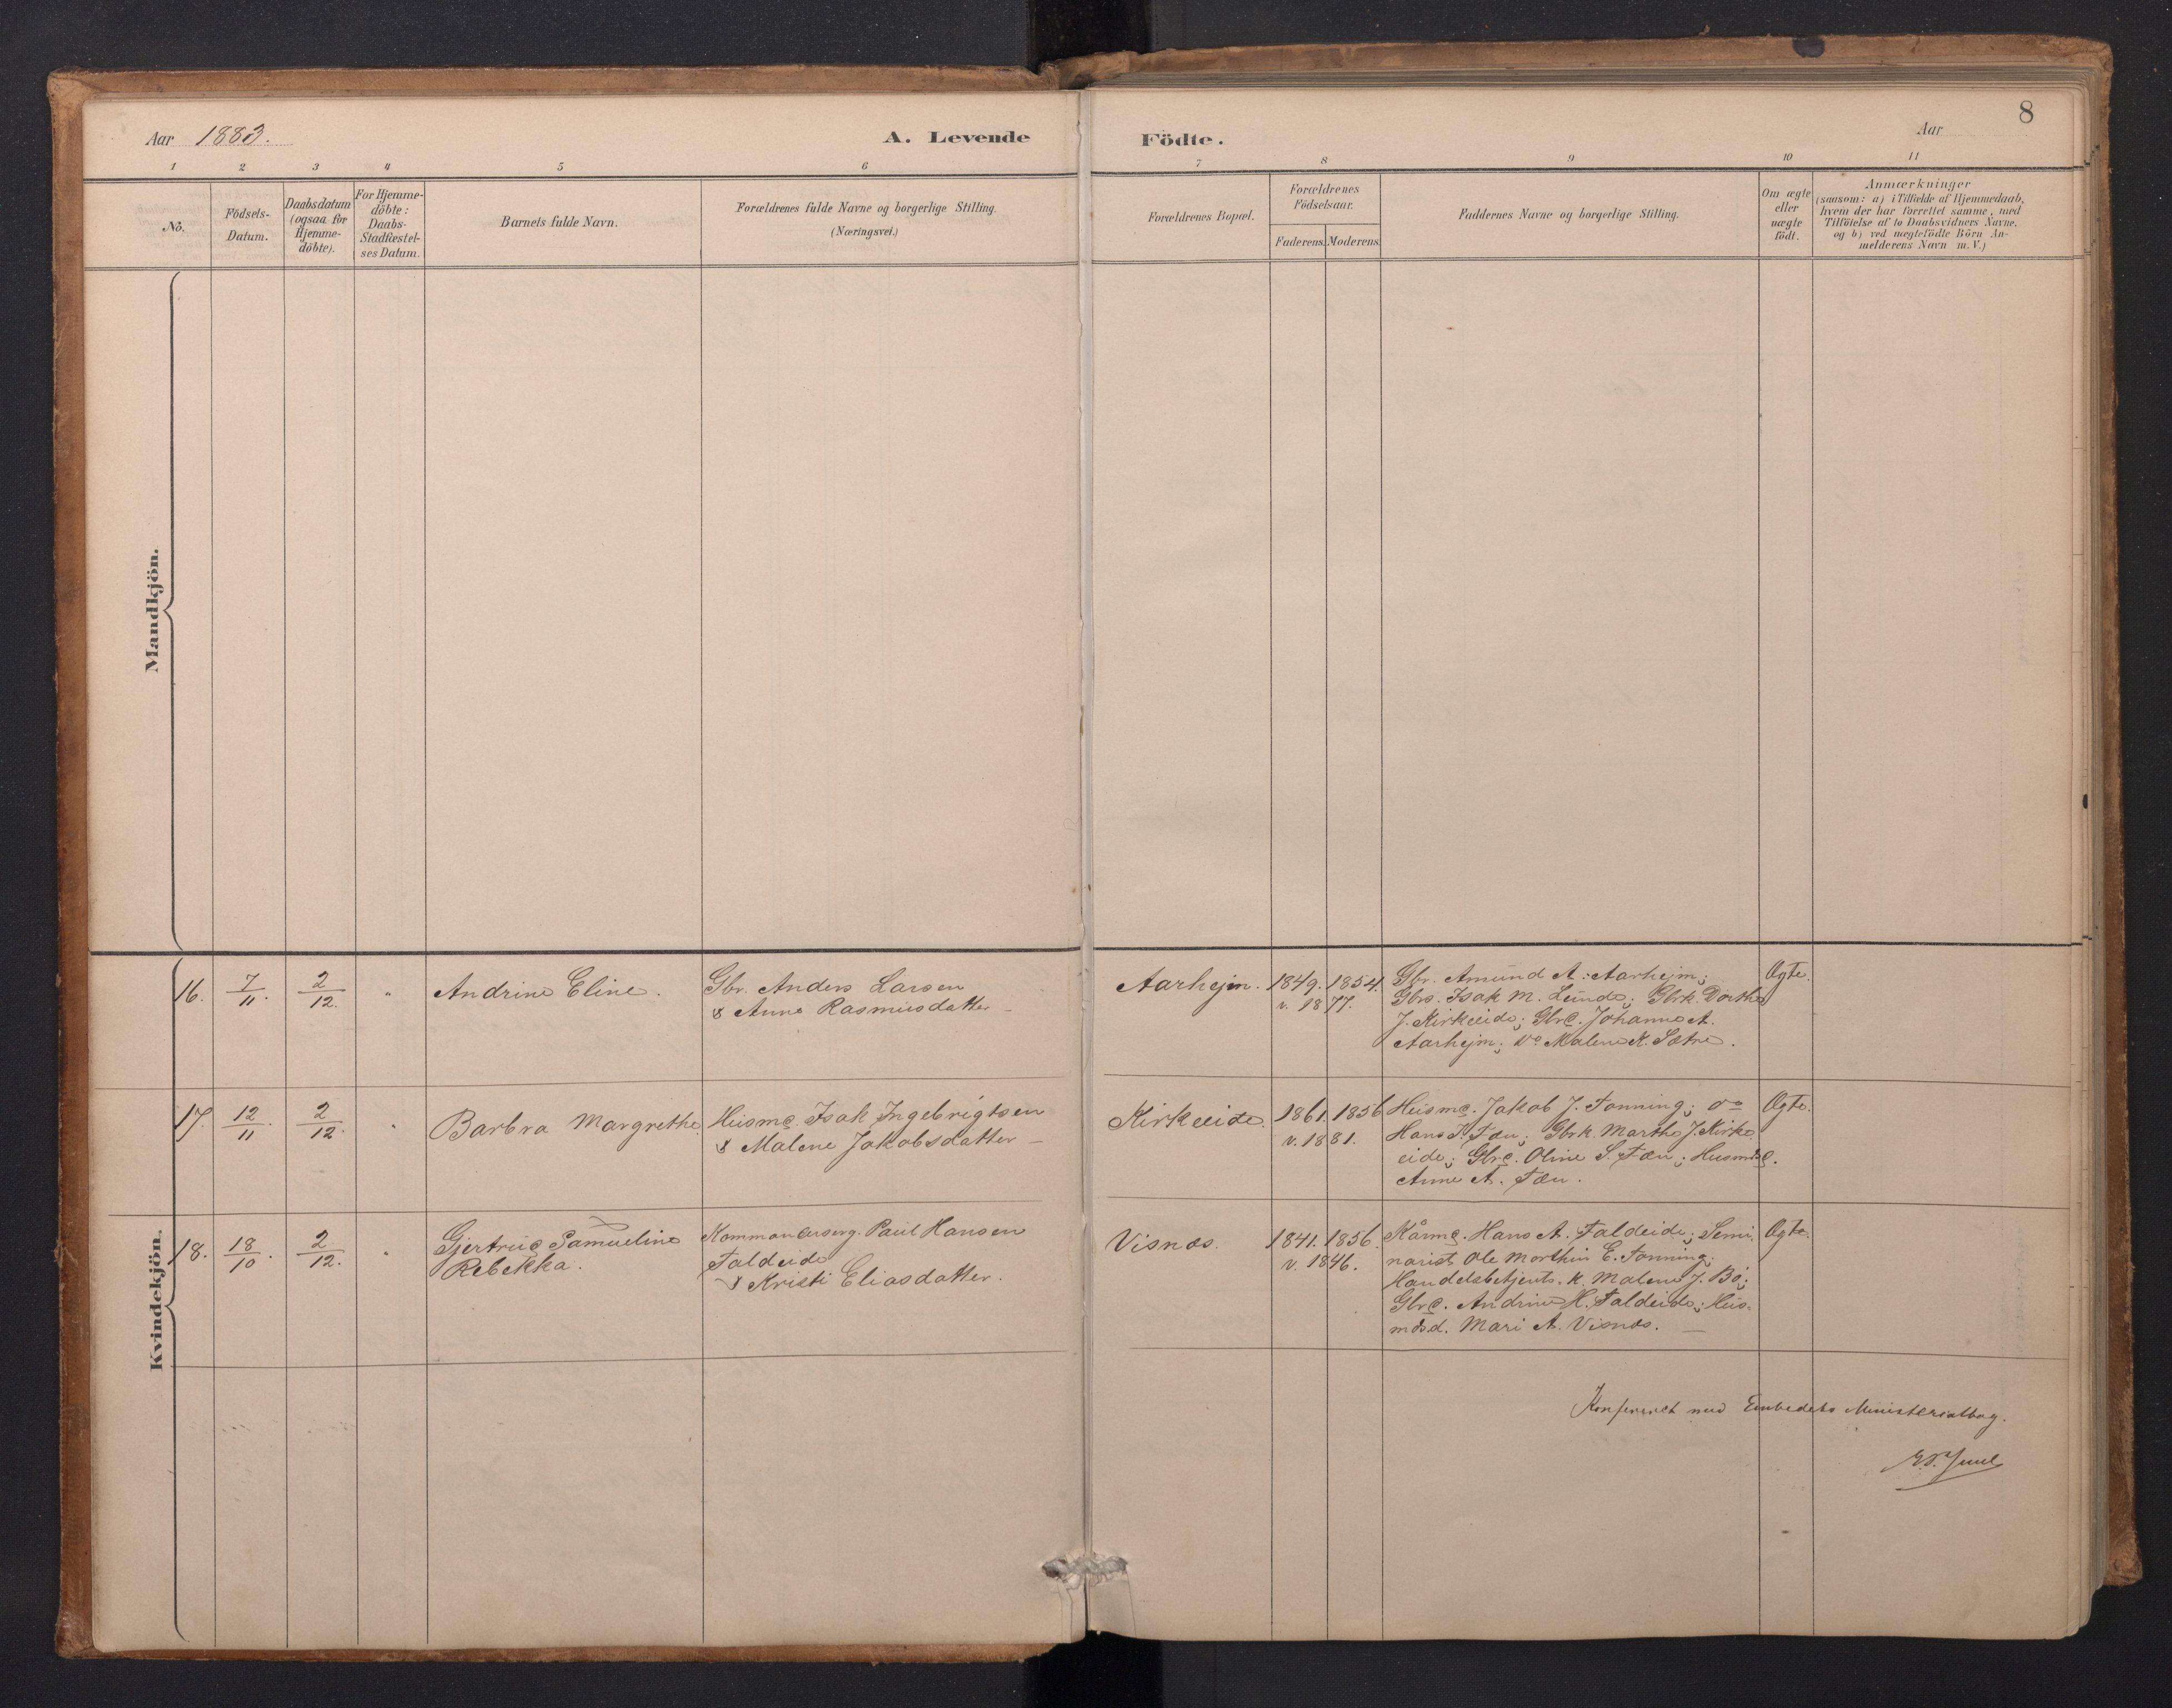 Aar 1883.
A. Levende
Födte.
Aar
8
1 2 3 4 5 6 7 8 9 10 11
No.
Födsels-
Datum.
Daabsdatum
(ogsaa for
Hjemme-
döbte).
For Hjemme-
döbte:
Daabs-
Stadfæstel-
ses Datum.
Barnets fulde Navn.
Forældrenes fulde Navne og borgerlige Stilling.
(Næringsvei.)
Forældrenes Bopæl.
Forældrenes
Födselsaar.
Faderens. Moderens.
Faddernes Navne og borgerlige Stilling.
Om ægte
eller
uægte
födt.
Anmærkninger
(saasom: a) i Tilfælde af Hjemmedaab,
hvem der har forrettet samme, med
Tilföielse af to Daabsvidners Navne.
og b) ved uægtefödte Börn An-
melderens Navn m. V.)
Mandkjön.
Kvindekjön.
16. 7/11. 2/12. " Andrine Eline.
Gbr. Anders Larsen
& Anne Rasmusdatter –
Aarhejm. 1849. 1854.
v. 1877.
Gbr. Amund A. Aarhejm;
Gbrs. Isak M. Lunde; Gbrk. Dorthe
J. Kirkeeide; Gbrd. Johanne A.
Aarhejm; do Malene K. Sætre.
Ægte.
17. 12/11. 2/12. " Barbra Margrethe.
Husmd. Isak Ingebrigtsen
& Malene Jakobsdatter –
Kirkeeide. 1861. 1856
v. 1881.
Husmd. Jakob J. Tonning; do
Hans J. Tæn; Gbrk. Marthe J. Kirke
eide; Gbrd. Oline S. Tæn; Husmdsd.
Anne A. Tæn.
Ægte.
18. 18/10. 2/12. " Gjertrud Samueline
Rebekka.
Paul Hansen
Faldeide
& Kristi Eliasdatter.
Visnæs. 1841. 1856.
v. 1846.
Kårmd. Hans A. Faldeide; Semi
narist Ole Morthin E. Tonning;
Handelsbetjents. k. Malene J. Bö;
Gbrd. Andrine H. Faldeide; Hus-
mdsd. Mari A. Visnæs. –
Ægte.
Konfereret med Embedets Ministerialbog.
Juul